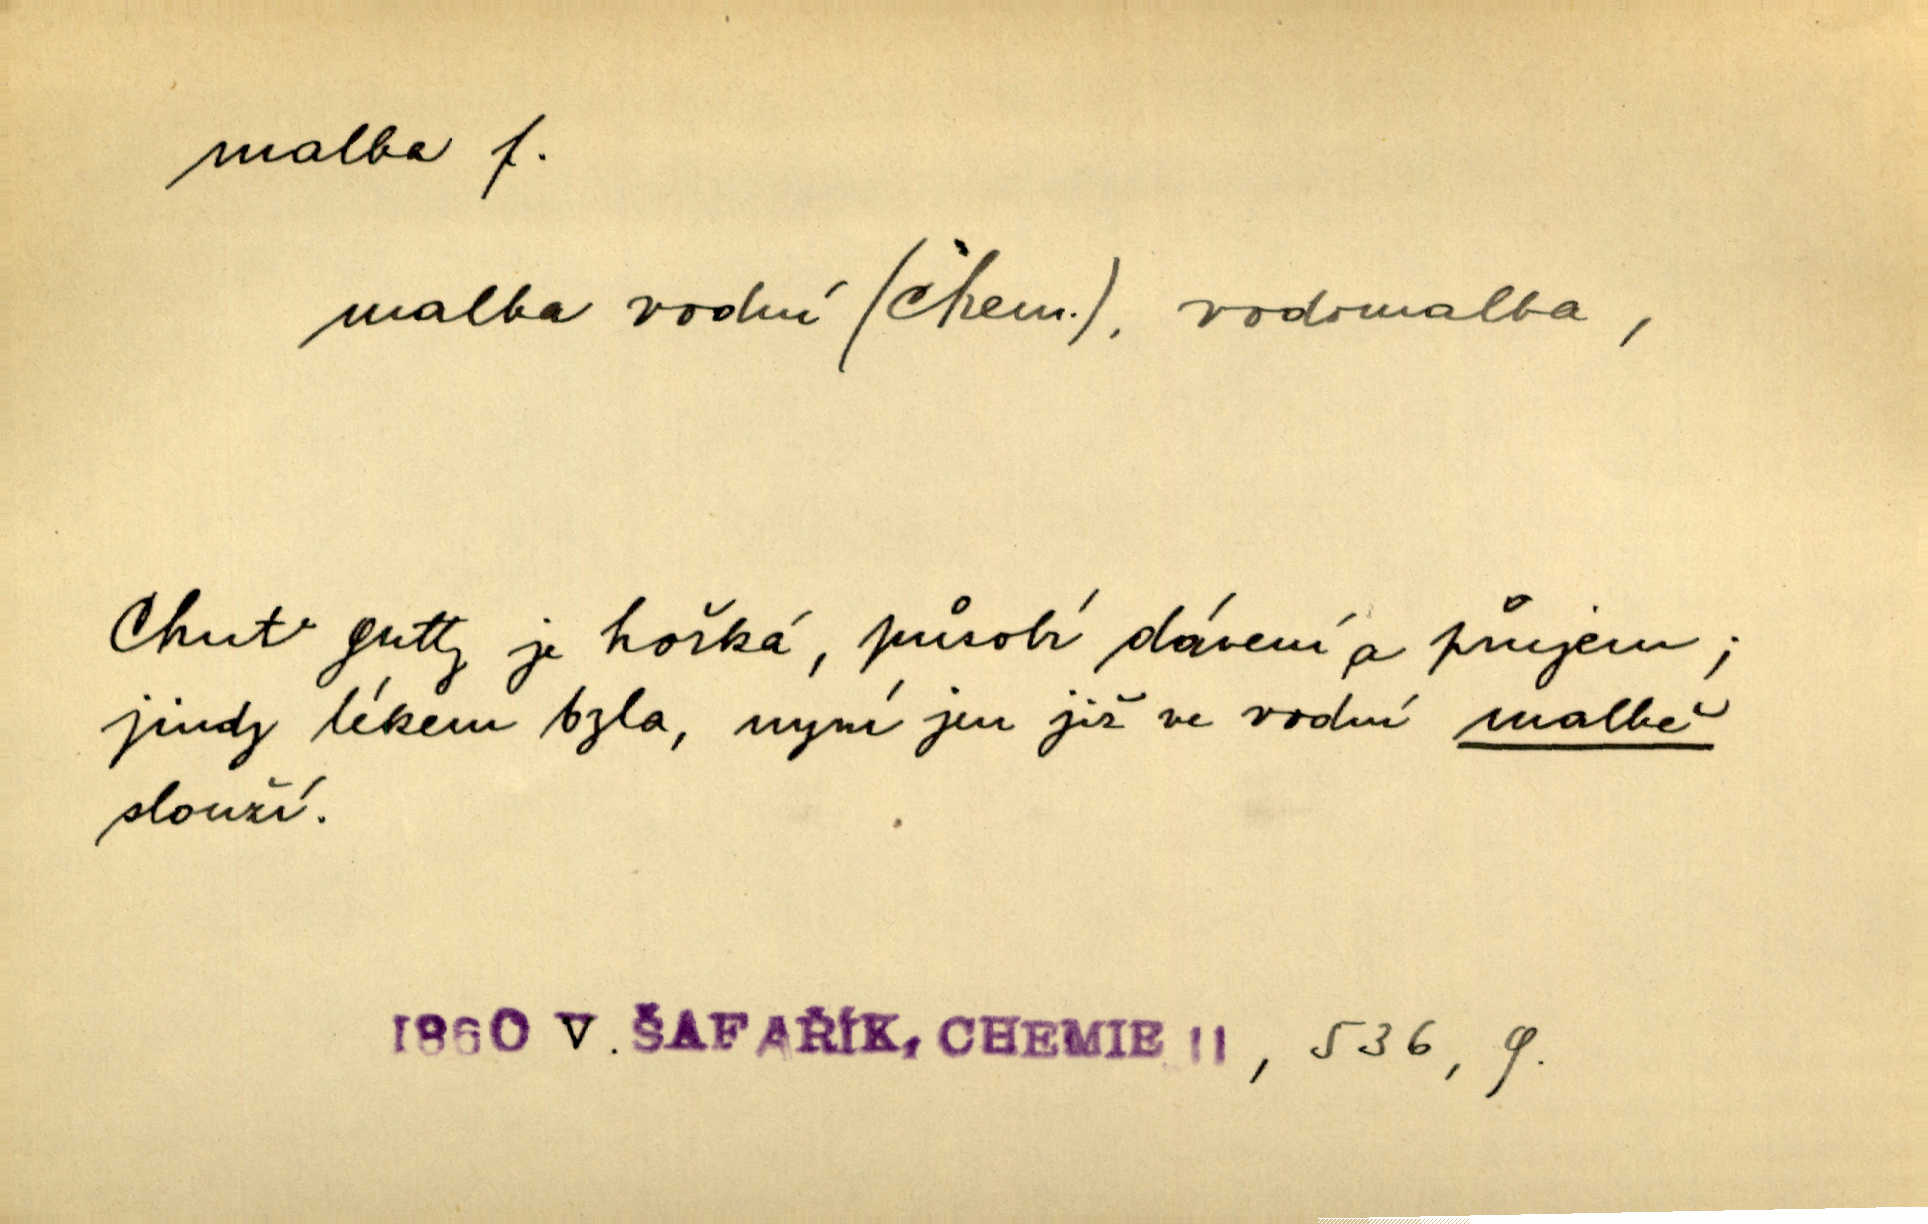 malba f.
malba vodní (chem.), vodomalba,
Chuť gutty je hořká, působí dávení a průjem;
jindy lékem byla, nyní jen již ve vodní malbě
slouží.
1860 V. ŠAFAŘÍK, CHEMIE II, 536, φ.